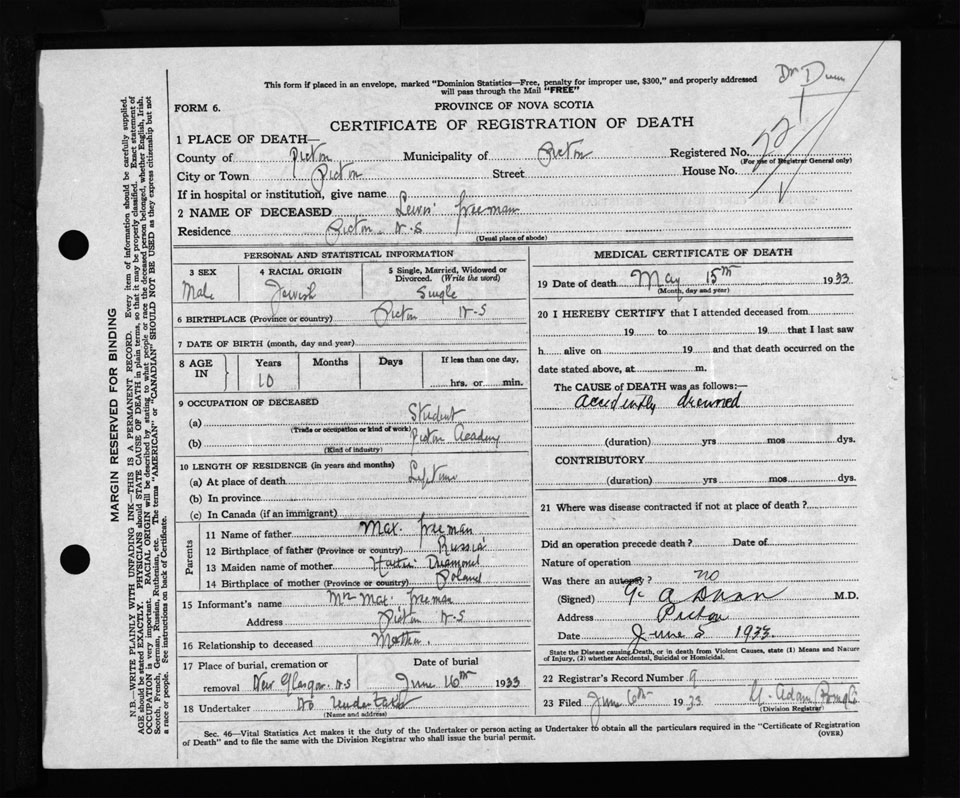 Dr Dunn
This form if placed in an envelope, marked "Dominion Statistics—Free, penalty for improper use, $300," and properly addressed
will pass through the Mail "FREE"
FORM 6.
PROVINCE OF NOVA SCOTIA
CERTIFICATE OF REGISTRATION OF DEATH
1 PLACE OF DEATH—
County of Pictou Municipality of Pictou Registered No.
(For use of Registrar General only)
City or Town Pictou Street House No.
If in hospital or institution, give name
2 NAME OF DECEASED Lewis Freeman
Residence Pictou N-S
(Usual place of abode)
PERSONAL AND STATISTICAL INFORMATION
3 SEX 4 RACIAL ORIGIN 5 Single, Married, Widowed or Divorced. (Write the word)
Male Jewish Single
6 BIRTHPLACE (Province or country) Pictou N-S
7 DATE OF BIRTH (month, day and year)
8 AGE IN Years Months Days If less than one day,
10 hrs. or min.
9 OCCUPATION OF DECEASED
(a) Student
(Trade or occupation or kind of work)
(b) Pictou Academy
(Kind of industry)
10 LENGTH OF RESIDENCE (in years and months)
(a) At place of death Lifetime
(b) In province
(c) In Canada (if an immigrant)
Parents
11 Name of father Max. Freeman
12 Birthplace of father (Province or country) Russia
13 Maiden name of mother Diamond
14 Birthplace of mother (Province or country) Poland
15 Informant's name Mrs Max. Freeman
Address Pictou N-S
16 Relationship to deceased Mother.
17 Place of burial, cremation or removal New Glasgow N-S
Date of burial June 16th 1933
18 Undertaker No Undertaker
(Name and address)
MEDICAL CERTIFICATE OF DEATH
19 Date of death May 15th 1933
(Month, day and year)
20 I HEREBY CERTIFY that I attended deceased from
19 to 19 that I last saw
h alive on 19 and that death occurred on the
date stated above, at m.
The CAUSE of DEATH was as follows:—
Accidently drowned
(duration) yrs mos dys.
CONTRIBUTORY
(duration) yrs mos dys.
21 Where was disease contracted if not at place of death?
Did an operation precede death? Date of
Nature of operation
Was there an autopsy? no
(Signed) A Dunn M.D.
Address Pictou
Date June 5 1933.
State the Disease causing Death, or in death from Violent Causes, state (1) Means and Nature
of Injury, (2) whether Accidental, Suicidal or Homicidal.
22 Registrar's Record Number 9
23 Filed June 6th 1933
(Division Registrar)
Sec. 46—Vital Statistics Act makes it the duty of the Undertaker or person acting as Undertaker to obtain all the particulars required in the "Certificate of Registration
of Death" and to file the same with the Division Registrar who shall issue the burial permit.
(OVER)
MARGIN RESERVED FOR BINDING
N.B.—WRITE PLAINLY WITH UNFADING INK—THIS IS A PERMANENT RECORD. Every item of information should be carefully supplied.
AGE should be stated EXACTLY. PHYSICIANS should STATE CAUSE OF DEATH in plain terms, so that it may be properly classified. Exact statement of
OCCUPATION is very important. RACIAL ORIGIN will be described by stating to what people or race the deceased person belonged, whether English, Irish,
Scotch, French, German, Russian, Ruthenian, etc. The terms "AMERICAN" or "CANADIAN" SHOULD NOT BE USED as they express citizenship but not
a race or people. See instructions on back of Certificate.